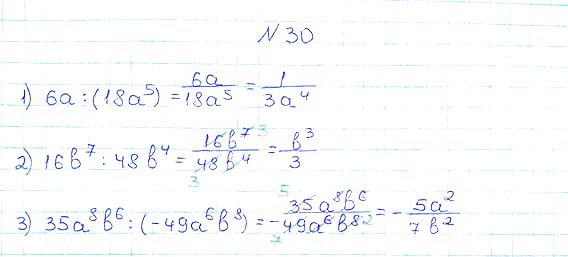 № 30
1) 6a : (18a⁵) = 6a/18a⁵ = 1/3a⁴
2) 16b⁷ : 48b⁴ = 16b⁷ 3/48b⁴ 3 = b³/3
3) 35a⁸b⁶ : (-49a⁶b⁸) = - 5 35a⁸b⁶/49a⁶b⁸ 2 7 = - 5a²/7b²